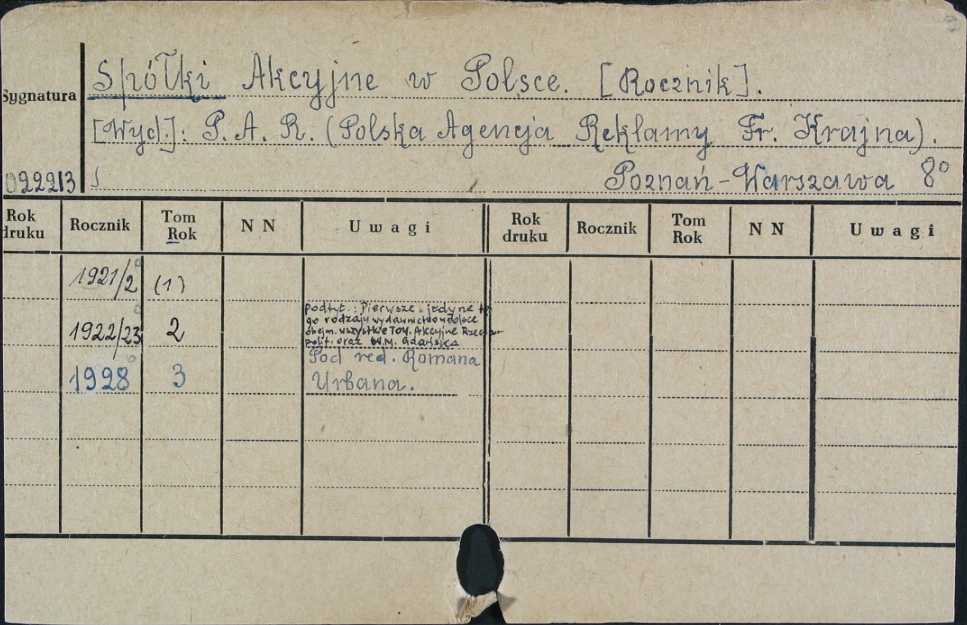 Spółki Akcyjne w Polsce. [Rocznik].
Sygnatura
[Wyd.]: P. A. R. (Polska Agencja Reklamy Fr. Krajna).
022213
Poznań-Warszawa 8°
Rok druku Rocznik Tom Rok NN Uwagi Rok druku Rocznik Tom Rok NN Uwagi
1921/2° (1)
podtyt.: Pierwsze i jedyne te
go rodzaju wydawnictwo w Polsce
1922/23° 2 obejm. wszystkie Tow. Akcyjne Rzeczy
polit. oraz W.M. Gdańska
Pod red. Romana
1928° 3 Urbana.